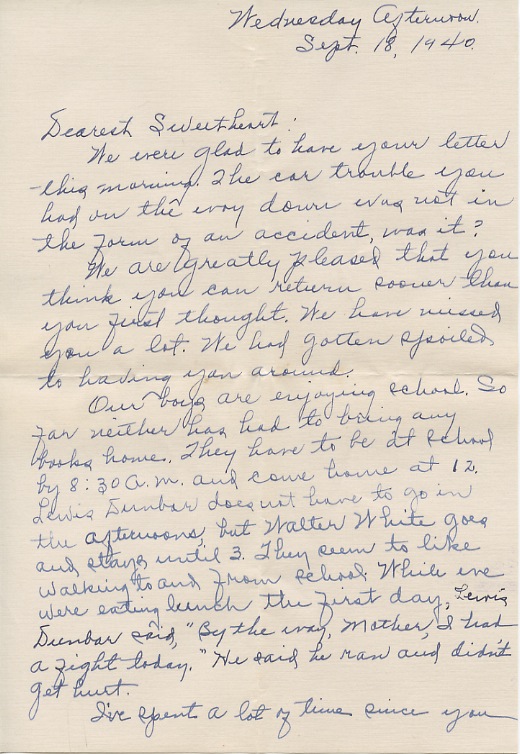 Wednesday Afternoon.
Sept. 18, 1940.
Dearest Sweetheart:
We were glad to have your letter
this morning. The car trouble you
had on the way down was not in
the form of an accident, was it?
We are greatly pleased that you
think you can return sooner than
you first thought. We have missed
you a lot. We had gotten spoiled
to having you around.
Our boys are enjoying school. So
far neither has had to bring any
books home. They have to be at school
by 8:30 A.m. and come home at 12.
Lewis Dunbar does not have to go in
the afternoons, but Walter White goes
and stays until 3. They seem to like
walking to and from school. While we
were eating lunch the first day, Lewis
Dunbar said, "By the way, Mother, I had
a fight today." He said he ran and didn't
get hurt.
I've spent a lot of time since you